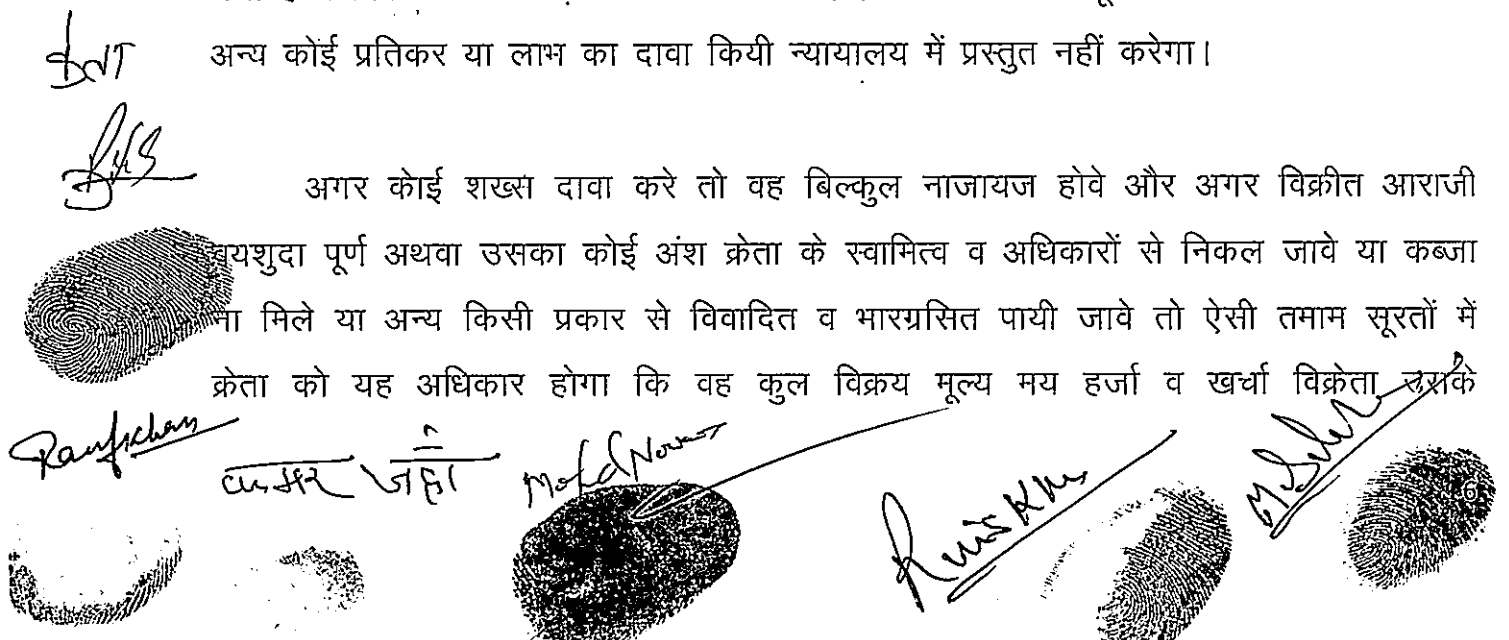 अन्य कोई प्रतिकर या लाभ का दावा कियी न्यायालय में प्रस्तुत नहीं करेगा।
अगर कोई शख्स दावा करे तो वह बिल्कुल नाजायज होवे और अगर विक्रीत आराजी
वयशुदा पूर्ण अथवा उसका कोई अंश क्रेता के स्वामित्व व अधिकारों से निकल जावे या कब्जा
ना मिले या अन्य किसी प्रकार से विवादित व भारग्रसित पायी जावे तो ऐसी तमाम सूरतों में
क्रेता को यह अधिकार होगा कि वह कुल विक्रय मूल्य मय हर्जा व खर्चा विक्रेता उसके
कमर जहाँ Mohd
6